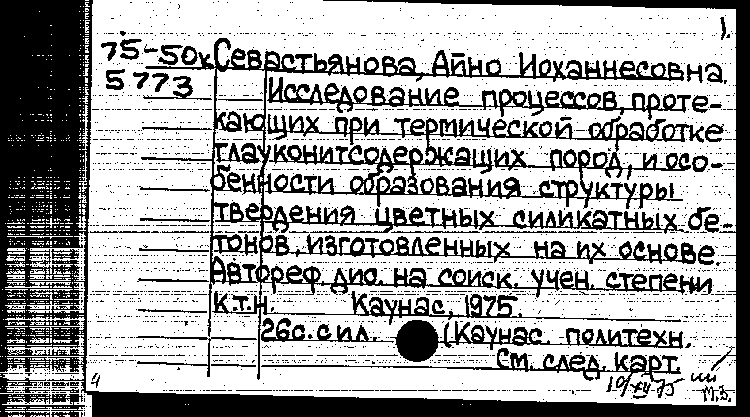 1.
75-50к Севастьянова, Айно Иоханнесовна.
5773 Исследование процессов, проте-
кающих при термической обработке
глауконитсодержащих пород, и осо-
бенности образования структуры
твердения цветных силикатных бе-
тонов, изготовленных на их основе.
Автореф. дис. на соиск. учен. степени
к.т.н. Каунас, 1975.
26с. с ил. (Каунас. политехн.
См. след. карт.
4
М.З.